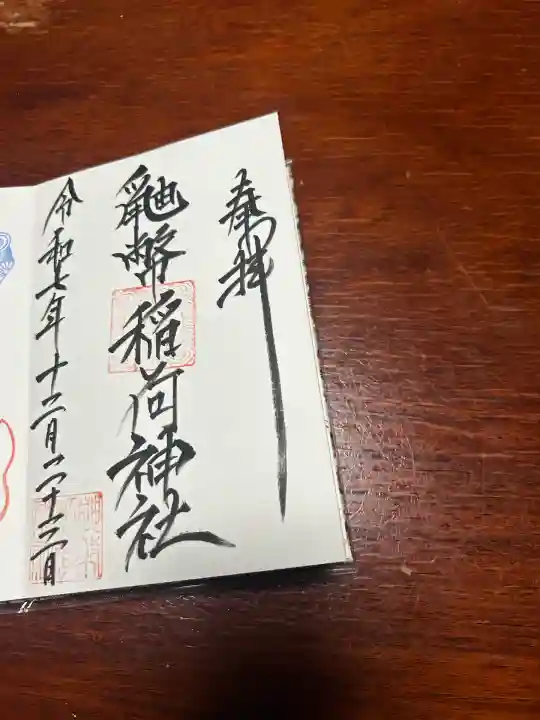 奉拝
鼬幣稲荷神社
令和七年十二月二十三日